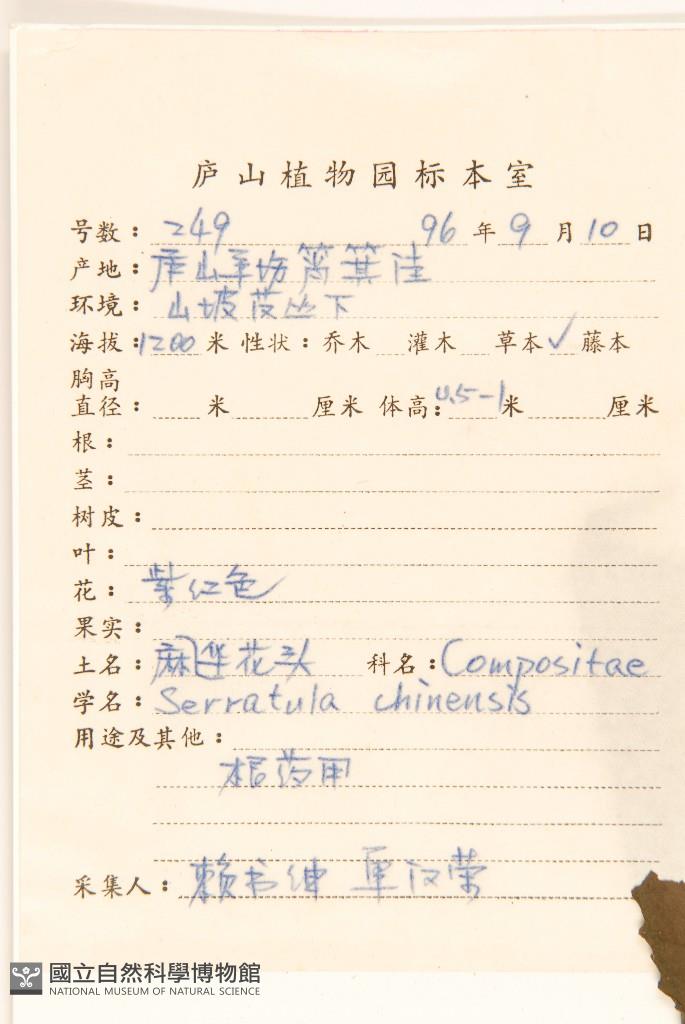 庐山植物园标本室
号数：249 96年9月10日
产地：庐山 筲箕洼
环境：山坡 丛下
海拔：1200米 性状：乔木 灌木 草本✓ 藤本
胸高
直径： 米 厘米 体高：0.5-1米 厘米
根：
茎：
树皮：
叶：
花：紫红色
果实：
土名：麻 花头 科名：Compositae
学名：Serratula chinensis
用途及其他：
根药用
采集人：赖书绅 单汉荣
國立自然科學博物館
NATIONAL MUSEUM OF NATURAL SCIENCE